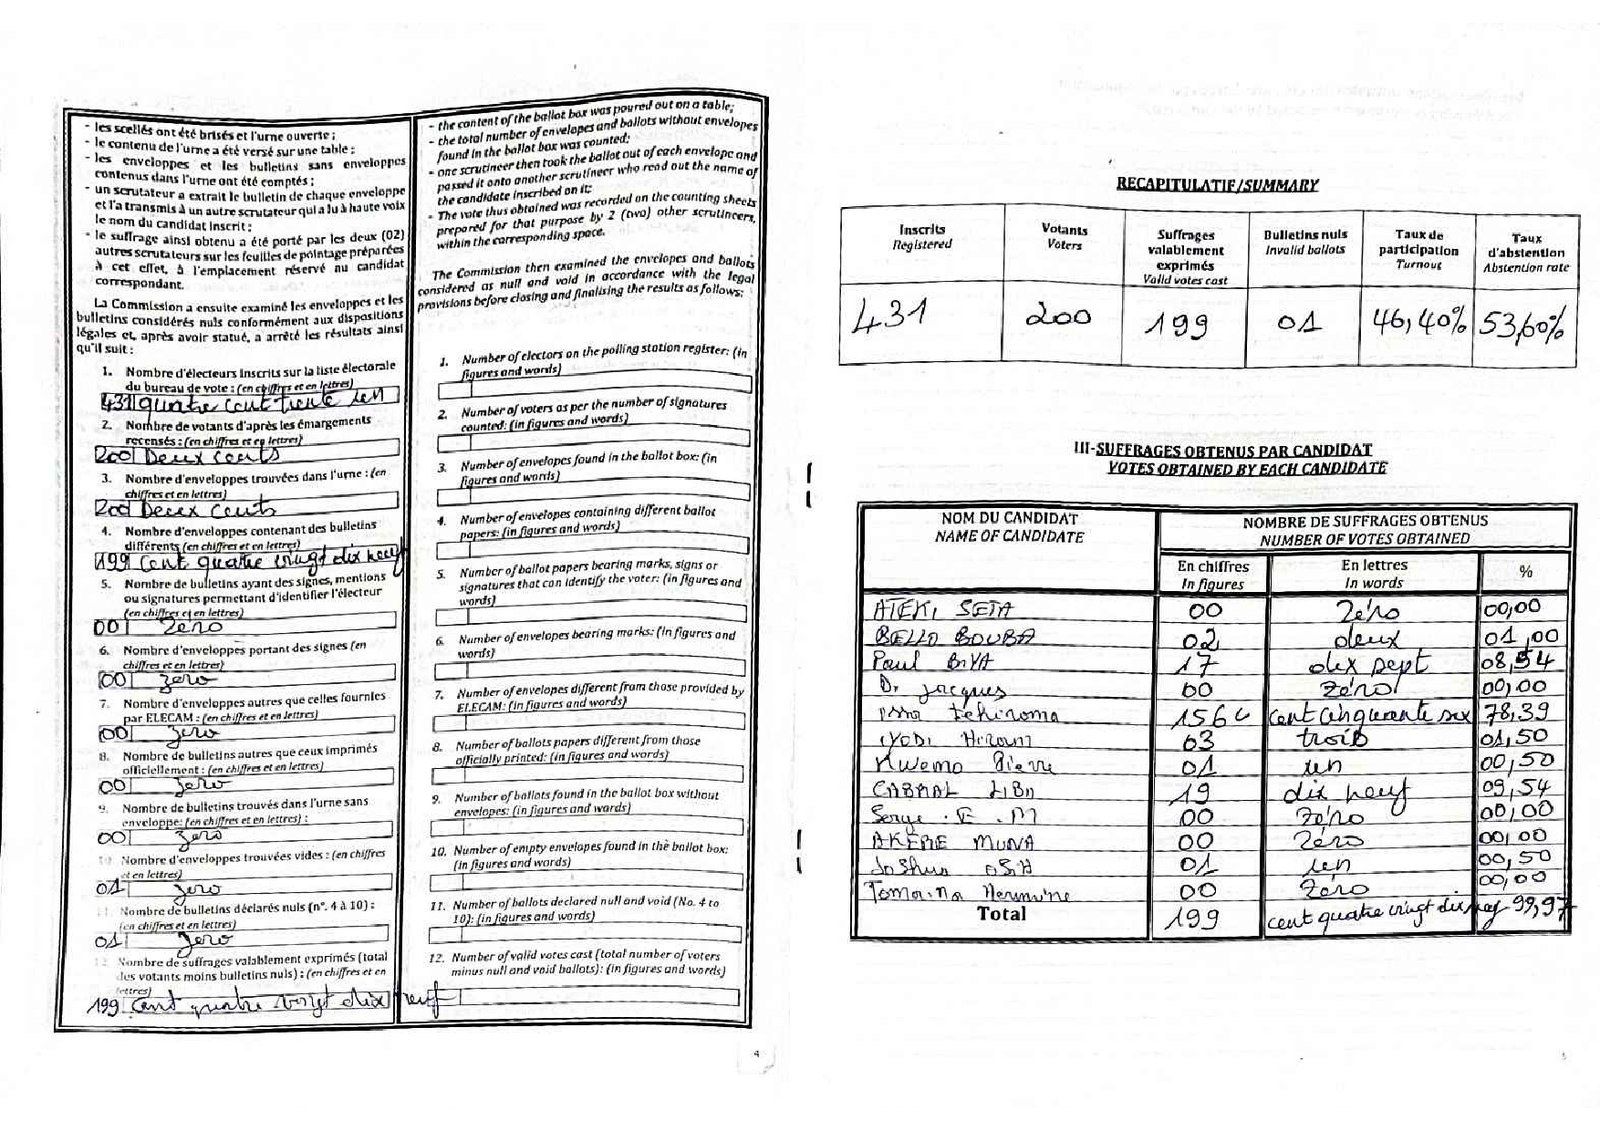 - les scellés ont été brisés et l'urne ouverte ;
- le contenu de l'urne a été versé sur une table ;
- les enveloppes et les bulletins sans enveloppes
contenus dans l'urne ont été comptés ;
- un scrutateur a extrait le bulletin de chaque enveloppe
et l'a transmis à un autre scrutateur qui a lu à haute voix
le nom du candidat inscrit ;
- le suffrage ainsi obtenu a été porté par les deux (02)
autres scrutateurs sur les feuilles de pointage préparées
à cet effet, à l'emplacement réservé au candidat
correspondant.
La Commission a ensuite examiné les enveloppes et les
bulletins considérés nuls conformément aux dispositions
légales et, après avoir statué, a arrêté les résultats ainsi
qu'il suit :
1. Nombre d'électeurs inscrits sur la liste électorale
du bureau de vote : (en chiffres et en lettres)
431 quatre cent trente un
2. Nombre de votants d'après les émargements
recensés : (en chiffres et en lettres)
200 Deux cents
3. Nombre d'enveloppes trouvées dans l'urne : (en
chiffres et en lettres)
200 Deux cents
4. Nombre d'enveloppes contenant des bulletins
différents (en chiffres et en lettres)
199 cent quatre vingt dix neuf
5. Nombre de bulletins ayant des signes, mentions
ou signatures permettant d'identifier l'électeur
(en chiffres et en lettres)
00 zero
6. Nombre d'enveloppes portant des signes (en
chiffres et en lettres)
00 zero
7. Nombre d'enveloppes autres que celles fournies
par ELECAM : (en chiffres et en lettres)
00 zero
8. Nombre de bulletins autres que ceux imprimés
officiellement : (en chiffres et en lettres)
00 zero
9. Nombre de bulletins trouvés dans l'urne sans
enveloppe: (en chiffres et en lettres) :
00 zero
10 Nombre d'enveloppes trouvées vides : (en chiffres
et en lettres)
01 zero
11. Nombre de bulletins déclarés nuls (n°. 4 à 10) :
(en chiffres et en lettres)
01 zero
12 Nombre de suffrages valablement exprimés (total
des votants moins bulletins nuls) : (en chiffres et en
lettres)
199 cent quatre vingt dix neuf
- the content of the ballot box was poured out on a table;
- the total number of envelopes and ballots without envelopes
found in the ballot box was counted;
- one scrutineer then took the ballot out of each envelope and
passed it onto another scrutineer who read out the name of
the candidate inscribed on it;
- The vote thus obtained was recorded on the counting sheets
prepared for that purpose by 2 (two) other scrutineers,
within the corresponding space.
The Commission then examined the envelopes and ballots
considered as null and void in accordance with the legal
provisions before closing and finalising the results as follows:
1. Number of electors on the polling station register: (in
figures and words)
2. Number of voters as per the number of signatures
counted: (in figures and words)
3. Number of envelopes found in the ballot box: (in
figures and words)
4. Number of envelopes containing different ballot
papers: (in figures and words)
5. Number of ballot papers bearing marks, signs or
signatures that can identify the voter: (in figures and
words)
6. Number of envelopes bearing marks: (in figures and
words)
7. Number of envelopes different from those provided by
ELECAM: (in figures and words)
8. Number of ballots papers different from those
officially printed: (in figures and words)
9. Number of ballots found in the ballot box without
envelopes: (in figures and words)
10. Number of empty envelopes found in the ballot box:
(in figures and words)
11. Number of ballots declared null and void (No. 4 to
10): (in figures and words)
12. Number of valid votes cast (total number of voters
minus null and void ballots): (in figures and words)
4
RECAPITULATIF/SUMMARY
Inscrits Registered
Votants Voters
Suffrages valablement exprimés Valid votes cast
Bulletins nuls Invalid ballots
Taux de participation Turnout
Taux d'abstention Abstention rate
431 200 199 01 46,40% 53,60%
III-SUFFRAGES OBTENUS PAR CANDIDAT
VOTES OBTAINED BY EACH CANDIDATE
NOM DU CANDIDAT
NAME OF CANDIDATE
NOMBRE DE SUFFRAGES OBTENUS
NUMBER OF VOTES OBTAINED
En chiffres
In figures
En lettres
In words
%
ATEKI SETA 00 Zéro 00,00
BELLO BOUBA 02 deux 01,00
Paul BIYA 17 dix sept 08,54
Dr jacques 00 zéro 00,00
Issa tchiroma 156 cent cinquante six 78,39
IYODI Hiram 03 trois 01,50
Kwemo Pierre 01 un 00,50
CABRAL LIBII 19 dix neuf 09,54
Serge .E .M 00 zéro 00,00
AKERE MUNA 00 zéro 00,00
Joshua OSIH 01 un 00,50
Tomaina Hermine 00 Zéro 00,00
Total 199 cent quatre vingt dix neuf 99,97